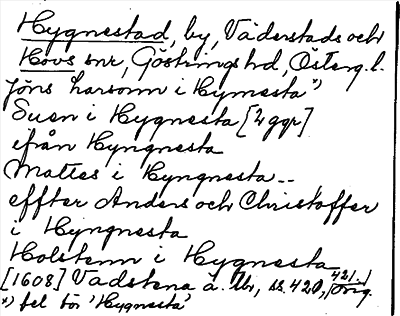 Hygnestad, by, Väderstads och
Hovs snr, Göstrings hd, Österg. l.
Jöns Larsonn i Hymesta *)
Suen i Hygnesta [2 ggr]
ifrån Hyngnesta
Mattes i Hyngnesta --
effter Anders och Christoffer
i Hyngnesta
Holstenn i Hygnesta
[1608] Vadstena ä. nr, ss. 420, 421. / Orig.
*) fel för 'Hygnesta'